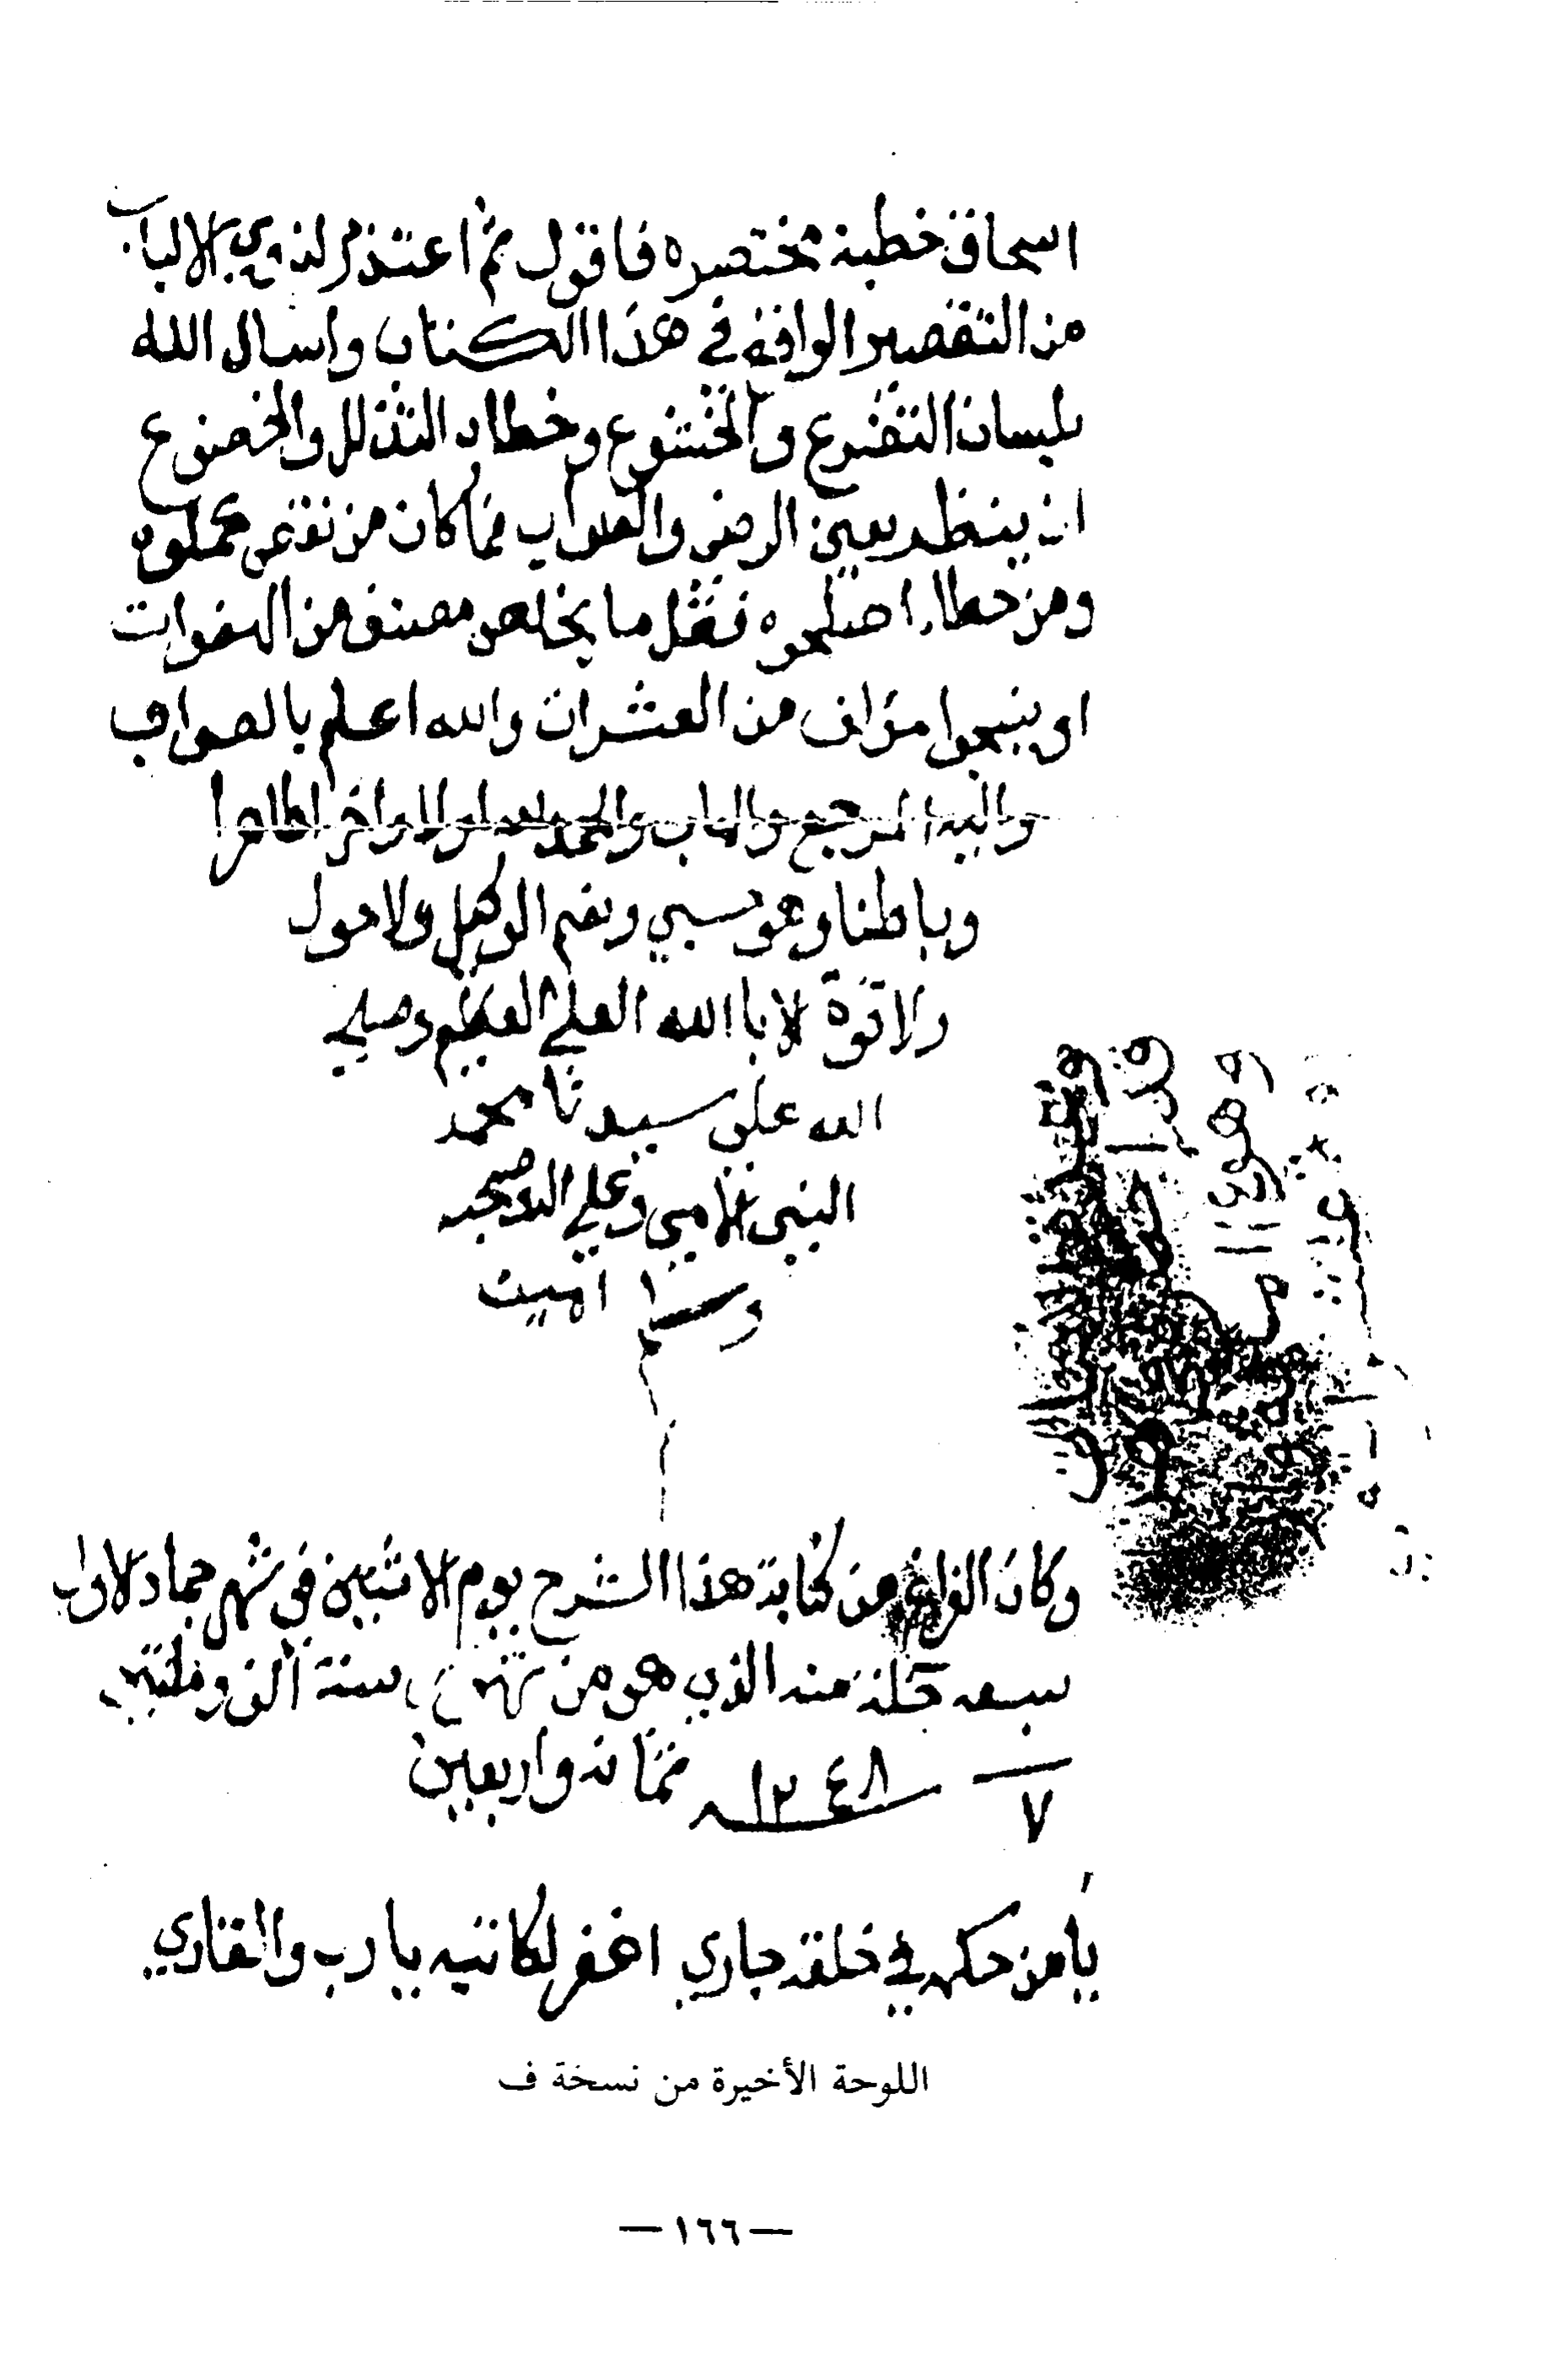 اسحاق خطبة مختصره فاقول ثم اعتذر لذوي الالباب
من التقصير الواقع في هذا الكتاب واسال الله
بلسان التضرع والخشوع وخطاب التذلل والخضوع
ان ينظر بعين الرضى والصواب فما كان من نقص كملوه
ومن خطاء اصلحوه فقل ما يخلص مصنف من الهفوات
او ينجوا مؤلف من العثرات والله اعلم بالصواب
واليه المرجع والماب والحمد لله اولا واخر اظاهرا
وباطنا وهو حسبي ونعم الوكيل ولا حول
ولا قوة الا باالله العلي العظيم وصلي
الله على سيدنا محمد
النبي الامي وعلي اله وصحبه
وسلم امين
وكان الفراغ من كتابة هذا الشرح يوم الاثنين في شهر جماد الاول
سبعه خلة منه الذي هو من شهور سنة الف ومئتين
٧ ١٢٤٨ ثمانة واربعين
يا من حكمه في خلقه جاري اغفر لكاتبه يا رب والقاري
اللوحة الأخيرة من نسخة ف
— ١٦٦ —